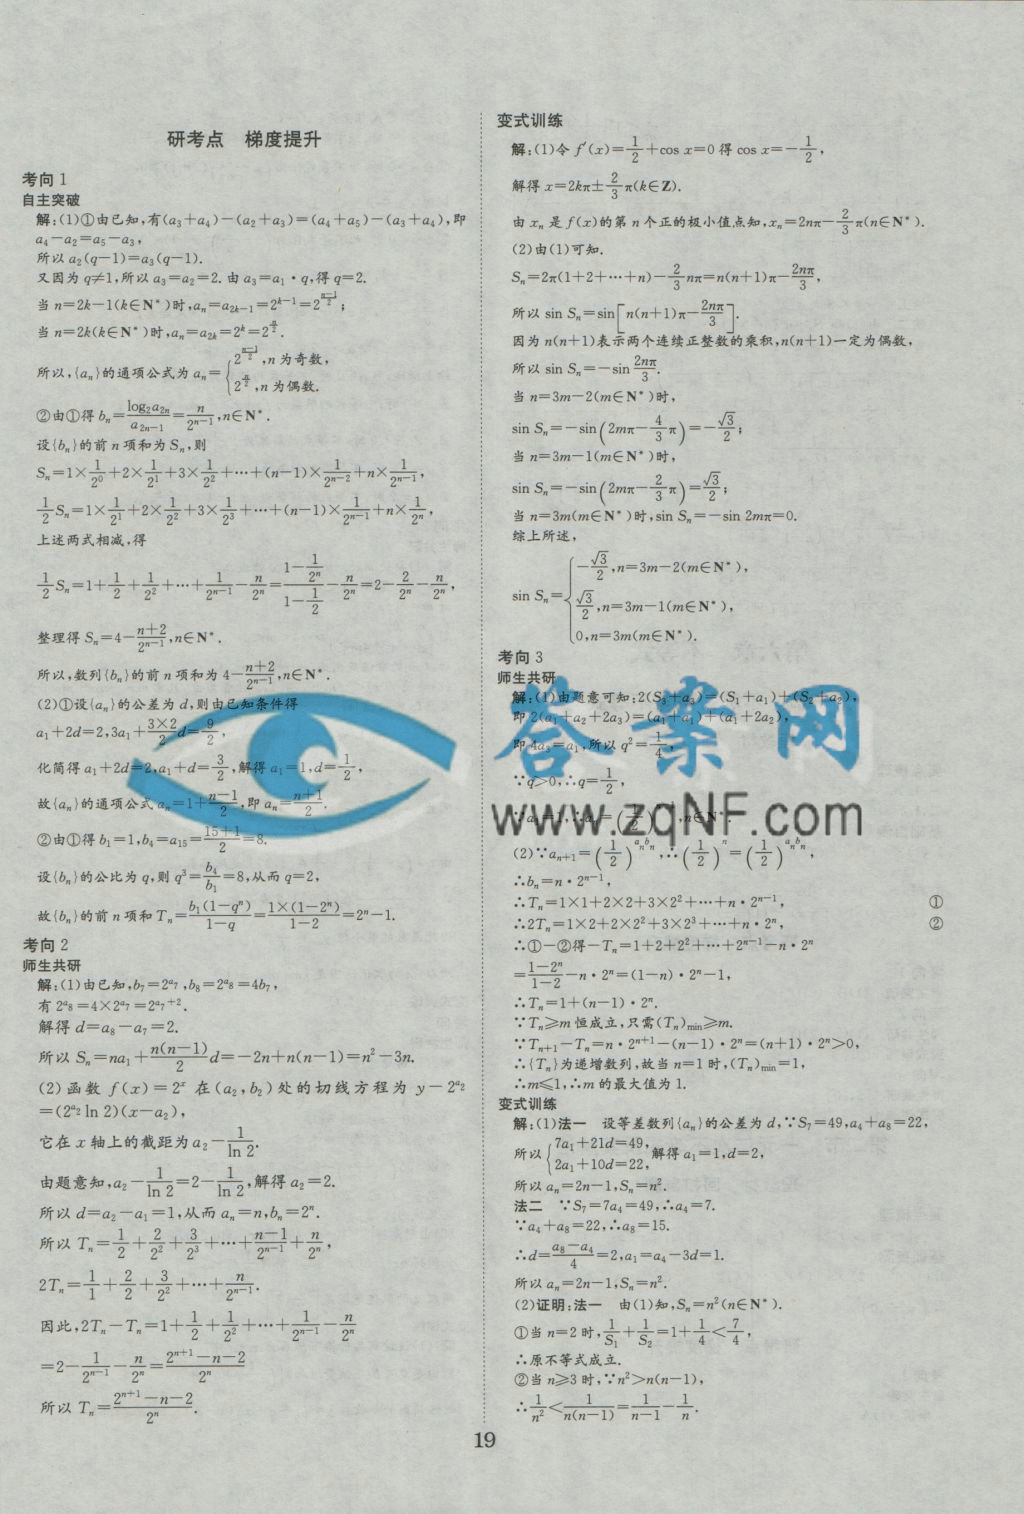 研考点 梯度提升
考向 1
自主突破
解:(1)①由已知,有(a₃+a₄)-(a₂+a₃)=(a₄+a₅)-(a₃+a₄),即
a₄-a₂=a₅-a₃,
所以 a₂(q-1)=a₃(q-1).
又因为 q≠1,所以 a₃=a₂=2. 由 a₃=a₁·q,得 q=2.
当 n=2k-1(k∈N*)时,aₙ=a_{2k-1}=2^{k-1}=2^{(n-1)/2};
当 n=2k(k∈N*)时,aₙ=a_{2k}=2^k=2^{n/2}.
所以,{aₙ}的通项公式为 aₙ={2^{(n-1)/2},n 为奇数,
2^{n/2},n 为偶数.
②由①得 bₙ=log₂a_{2n}/a_{2n-1}=n/2^{n-1},n∈N*.
设{bₙ}的前 n 项和为 Sₙ,则
Sₙ=1×1/2⁰+2×1/2¹+3×1/2²+⋯+(n-1)×1/2^{n-2}+n×1/2^{n-1},
1/2 Sₙ=1×1/2¹+2×1/2²+3×1/2³+⋯+(n-1)×1/2^{n-1}+n×1/2ⁿ,
上述两式相减,得
1/2 Sₙ=1+1/2+1/2²+⋯+1/2^{n-1}-n/2ⁿ=(1-1/2ⁿ)/(1-1/2)-n/2ⁿ=2-2/2ⁿ-n/2ⁿ,
整理得 Sₙ=4-(n+2)/2^{n-1},n∈N*.
所以,数列{bₙ}的前 n 项和为 4-(n+2)/2^{n-1},n∈N*.
(2)①设{aₙ}的公差为 d,则由已知条件得
a₁+2d=2,3a₁+(3×2)/2 d=9/2,
化简得 a₁+2d=2,a₁+d=3/2,解得 a₁=1,d=1/2,
故{aₙ}的通项公式 aₙ=1+(n-1)/2,即 aₙ=(n+1)/2.
②由①得 b₁=1,b₄=a₁₅=(15+1)/2=8.
设{bₙ}的公比为 q,则 q³=b₄/b₁=8,从而 q=2,
故{bₙ}的前 n 项和 Tₙ=b₁(1-qⁿ)/(1-q)=1×(1-2ⁿ)/(1-2)=2ⁿ-1.
考向 2
师生共研
解:(1)由已知,b₇=2^{a₇},b₈=2^{a₈}=4b₇,
有 2^{a₈}=4×2^{a₇}=2^{a₇+2}.
解得 d=a₈-a₇=2.
所以 Sₙ=na₁+n(n-1)/2 d=-2n+n(n-1)=n²-3n.
(2)函数 f(x)=2ˣ 在(a₂,b₂)处的切线方程为 y-2^{a₂}
=(2^{a₂}ln 2)(x-a₂),
它在 x 轴上的截距为 a₂-1/ln 2.
由题意知,a₂-1/ln 2=2-1/ln 2,解得 a₂=2.
所以 d=a₂-a₁=1,从而 aₙ=n,bₙ=2ⁿ.
所以 Tₙ=1/2+2/2²+3/2³+⋯+(n-1)/2^{n-1}+n/2ⁿ,
2Tₙ=1/1+2/2+3/2²+⋯+n/2^{n-1}.
因此,2Tₙ-Tₙ=1+1/2+1/2²+⋯+1/2^{n-1}-n/2ⁿ
=2-1/2^{n-1}-n/2ⁿ=(2^{n+1}-n-2)/2ⁿ
所以 Tₙ=(2^{n+1}-n-2)/2ⁿ.
变式训练
解:(1)令 f′(x)=1/2+cos x=0 得 cos x=-1/2,
解得 x=2kπ±2/3 π(k∈Z).
由 xₙ 是 f(x)的第 n 个正的极小值点知,xₙ=2nπ-2/3 π(n∈N*).
(2)由(1)可知.
Sₙ=2π(1+2+⋯+n)-2/3 nπ=n(n+1)π-2nπ/3,
所以 sin Sₙ=sin[n(n+1)π-2nπ/3].
因为 n(n+1)表示两个连续正整数的乘积,n(n+1)一定为偶数,
所以 sin Sₙ=-sin 2nπ/3.
当 n=3m-2(m∈N*)时,
sin Sₙ=-sin(2mπ-4/3 π)=-√3/2;
当 n=3m-1(m∈N*)时,
sin Sₙ=-sin(2mπ-2/3 π)=√3/2;
当 n=3m(m∈N*)时,sin Sₙ=-sin 2mπ=0.
综上所述,
sin Sₙ={-√3/2,n=3m-2(m∈N*),
√3/2,n=3m-1(m∈N*),
0,n=3m(m∈N*).
考向 3
师生共研
解:(1)由题意可知:2(S₃+a₃)=(S₁+a₁)+(S₂+a₂),
即 2(a₁+a₂+2a₃)=(a₁+a₁)+(a₁+2a₂),
即 4a₃=a₁,所以 q²=1/4,
∵q>0,∴q=1/2,
∵a₁=1,∴aₙ=(1/2) ,n∈N*.
(2)∵a_{n+1}=(1/2)^{aₙbₙ},∴(1/2)ⁿ=(1/2)^{aₙbₙ},
∴bₙ=n·2^{n-1},
∴Tₙ=1×1+2×2+3×2²+⋯+n·2^{n-1}, ①
∴2Tₙ=1×2+2×2²+3×2³+⋯+n·2ⁿ, ②
∴①-②得-Tₙ=1+2+2²+⋯+2^{n-1}-n·2ⁿ
=(1-2ⁿ)/(1-2)-n·2ⁿ=(1-n)·2ⁿ-1,
∴Tₙ=1+(n-1)·2ⁿ.
∵Tₙ≥m 恒成立,只需(Tₙ)min≥m.
∵T_{n+1}-Tₙ=n·2^{n+1}-(n-1)·2ⁿ=(n+1)·2ⁿ>0,
∴{Tₙ}为递增数列,故当 n=1 时,(Tₙ)min=1,
∴m≤1,∴m 的最大值为 1.
变式训练
解:(1)法一 设等差数列{aₙ}的公差为 d,∵S₇=49,a₄+a₈=22,
所以{7a₁+21d=49,
2a₁+10d=22,解得 a₁=1,d=2,
所以 aₙ=2n-1,Sₙ=n².
法二 ∵S₇=7a₄=49,∴a₄=7.
∵a₄+a₈=22,∴a₈=15.
∴d=(a₈-a₄)/4=2,a₁=a₄-3d=1.
所以 aₙ=2n-1,Sₙ=n².
(2)证明:法一 由(1)知,Sₙ=n²(n∈N*).
①当 n=2 时,1/S₁+1/S₂=1+1/4<7/4,
∴原不等式成立.
②当 n≥3 时,∵n²>n(n-1),
∴1/n²<1/n(n-1)=1/(n-1)-1/n.
19
答案网
www.zqNF.com